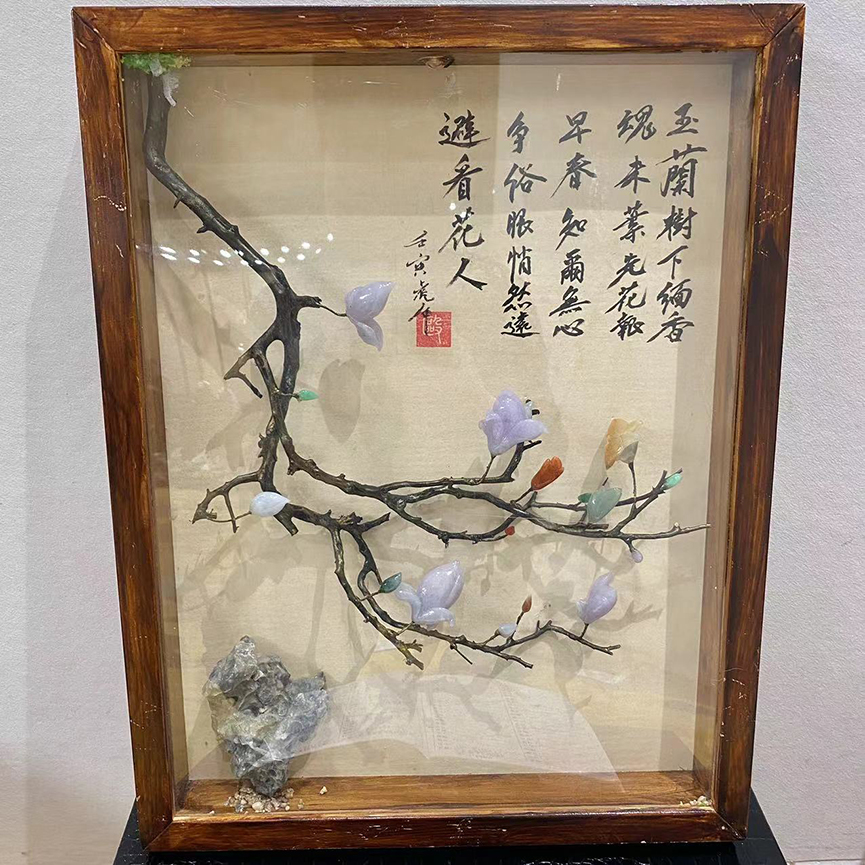 玉蘭樹下緬香
魂未葉先花報
早春知爾無心
争俗眼悄然遠
避看花人
壬寅虎年